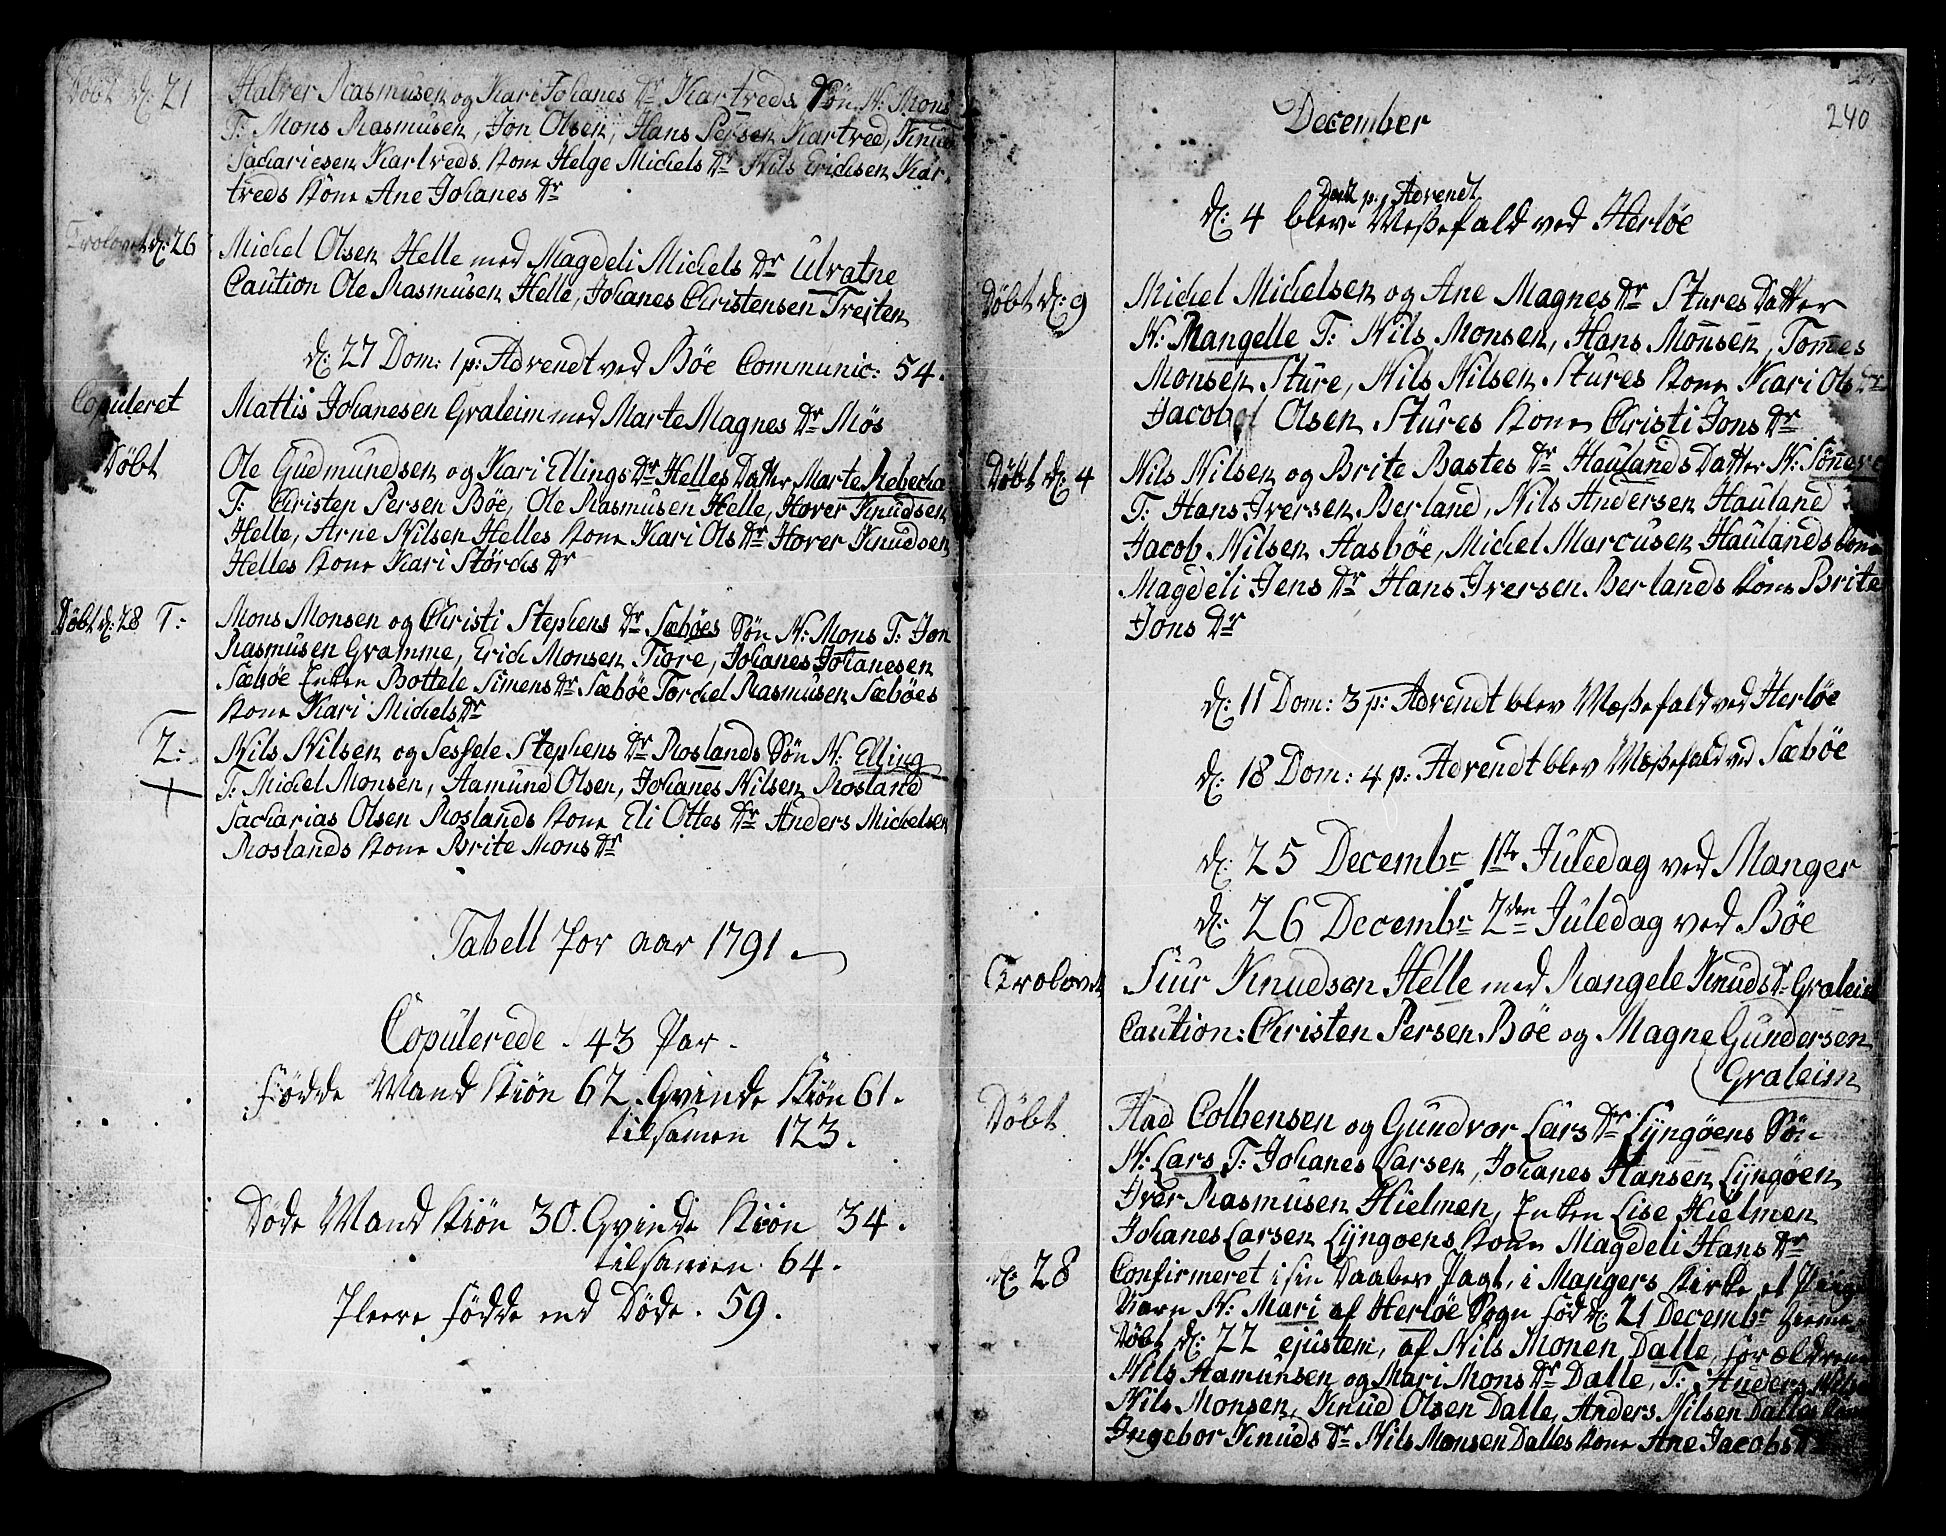 Døbt d: 21 Halver Rasmusen og Kari Johanes Dr Kartveds Søn N: Mons
T: Mons Rasmusen, Jon Olsen, Hans Persen Kartved, Knud
Sachariesen Kartveds Kone Helge Michels Dr Nils Erichsen Kar-
tveds Kone Ane Johanes Dr
Trolovet d: 26 Michel Olsen Helle med Magdeli Michels Dr Ulvatne
Caution Ole Rasmusen Helle, Johanes Christensen Treiten
d: 27 Dom: 1 p: Advendt ved Bøe Communic: 54.
Copuleret Mattis Johanesen Graleim med Marte Magnes Dr Møs
Døbt Ole Gudmundsen og Kari Ellings Dr Helles Datter Marte Rebecka
T: Christen Persen Bøe, Ole Rasmusen Helle, Hover Knudsen
Helle, Arne Nilsen Helles Kone Kari Ols Dr Hover Knudsen
Helles Kone Kari Størcks Dr
Døbt d: 28 T: Mons Monsen og Christi Stephens Dr Sæbøes Søn N: Mons T: Jon
Rasmusen Gramme, Erich Monsen Fiore, Johanes Johanesen
Sæbøe Enken Bottele Simens Dr Sæbøe Torchel Rasmusen Sæbøes
Kone Kari Michels Dr
2: Nils Nilsen og Sessele Stephens Dr Roslands Søn N: Elling
T: Michel Monsen, Aamund Olsen, Johanes Nilsen Rosland
Sacharias Olsen Roslands Kone Eli Ottes Dr Anders Michelsen
Roslands Kone Brite Mons Dr
Tabell for aar 1791.
Copulerede . 43 Par .
Fødde Mand Kiøn 62. Qvinde Kiøn 61.
tilsamen 123.
Døde Mand Kiøn 30. Qvinde Kiøn 34.
tilsamen 64.
Fleere fødde end Døde. 59.
240
December
p: Advendt
d: 4 blev Messefald ved Herløe
Døbt d: 9 Michel Michelsen og Ane Magnes Dr Stures Datter
N: Mangelle T: Nils Monsen, Hans Monsen, Tomes
Monsen Sture, Nils Nilsen Stures Kone Kari Ols Dr
Jacob Olsen Stures Kone Christi Jons Dr
Døbt d: 4 Nils Nilsen og Brite Bastes Dr Haulands Datter N: Sønneve
T: Hans Iversen Berland, Nils Andersen Hauland
Jacob Nilsen Hasbøe, Michel Marcusen Haulands Kone
Magdeli Jens Dr Hans Iversen Berlands Kone Brite
Jons Dr
d: 11 Dom: 3 p: Advendt blev Messefald ved Herløe
d: 18 Dom: 4 p: Advendt blev Messefald ved Sæbøe
d: 25 Decembr 1ste Juledag ved Manger
d: 26 Decembr 2den Juledag ved Bøe
Trolovet Siur Knudsen Helle med Rangele Knuds Dr Graleim
Caution: Christen Persen Bøe og Magne Gundersen
Graleim
Døbt Aad Colbensen og Gundvor Lars Dr Lyngøens Søn
N: Lars T: Johanes Larsen, Johanes Hansen Lyngøen
Iver Rasmusen Hielmen, Enken Lise Hielmen
Johanes Larsen Lyngøens Kone Magdeli Hans Dr
d: 28 Confirmeret i sin Daabes Pagt, i Mangers Kirke et Pige
Barn N: Mari af Herløe Sogn fød d: 21 Decembr
Døbt d: 22 ejusdem, af Nils Monen Dalle, forældrene
Nils Aamunsen og Mari Mons Dr Dalle, T: Anders Nilsen
Nils Monsen, Knud Olsen Dalle, Anders Nilsen Dalles Kone
Ingebor Knuds Dr Nils Monsen Dalles Kone Ane Jacobs Dr